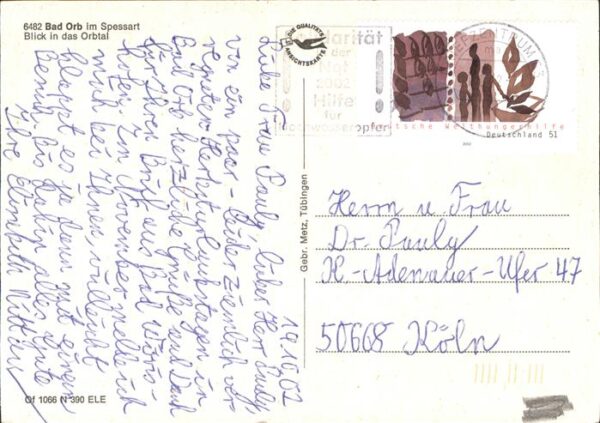 6482 Bad Orb im Spessart
Blick in das Orbtal
DIE QUALITÄTS
ANSICHTSKARTE
Solidarität
in der
Not
2002
Hilfe
für
Hochwasseropfer
ZENTRUM
Deutsche Welthungerhilfe
2002
Deutschland 51
19.10.02
Liebe Frau Pauly, lieber Herr Pauly,
von ein paar - leider ziemlich ver-
regneten Herbsturlaubstagen in
Bad Orb herzliche Grüße und Dank
für Ihren Brief aus Bad Wöris-
hofen. Im November melde ich
mich bei Ihnen, vielleicht
klappt es ja dann mit einem
Besuch. Bis dahin alles Gute
Ihre Elisabeth
Gebr. Metz, Tübingen
Herrn u. Frau
Dr. Pauly
K.-Adenauer-Ufer 47
50668 Köln
Of 1066 N 390 ELE